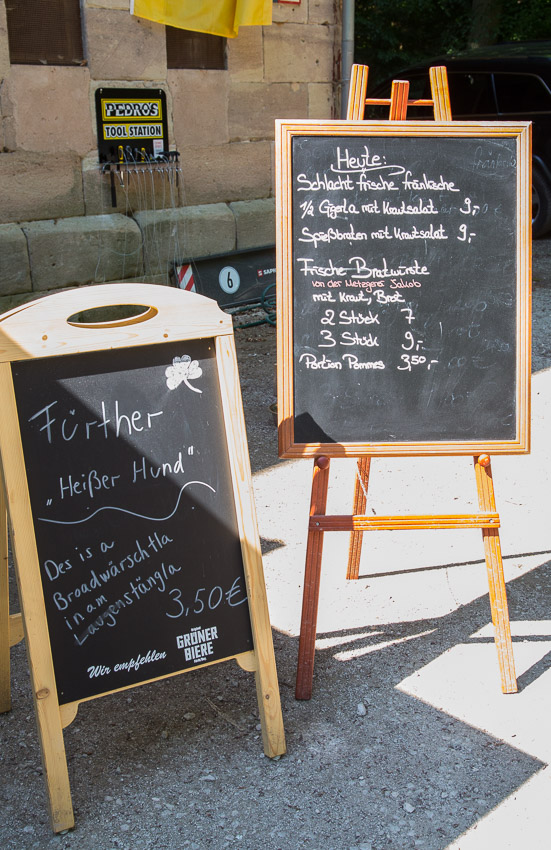 PEDRO'S
TOOL STATION
6
Heute:
Schlacht frische fränkische
1/2 Gigerla mit Krautsalat 9,-
Spießbraten mit Krautsalat 9,-
Frische Bratwürste
von der Metzgerei Jakob
mit Kraut, Brot
2 Stück 7
3 Stück 9,-
Portion Pommes 3,50,-
Fürther
„Heißer Hund"
Des is a
Broadwärschtla
in am
Laugenstängla
3,50€
Wir empfehlen
GRÜNER
BIERE